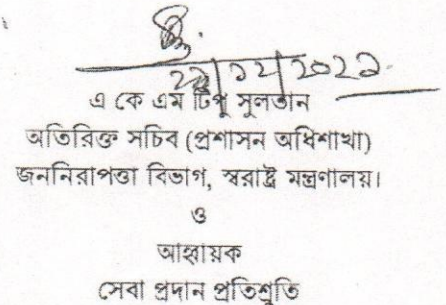 এ কে এম টিপু সুলতান
অতিরিক্ত সচিব (প্রশাসন অধিশাখা)
জননিরাপত্তা বিভাগ, স্বরাষ্ট্র মন্ত্রণালয়।
ও
আহ্বায়ক
সেবা প্রদান প্রতিশ্রুতি